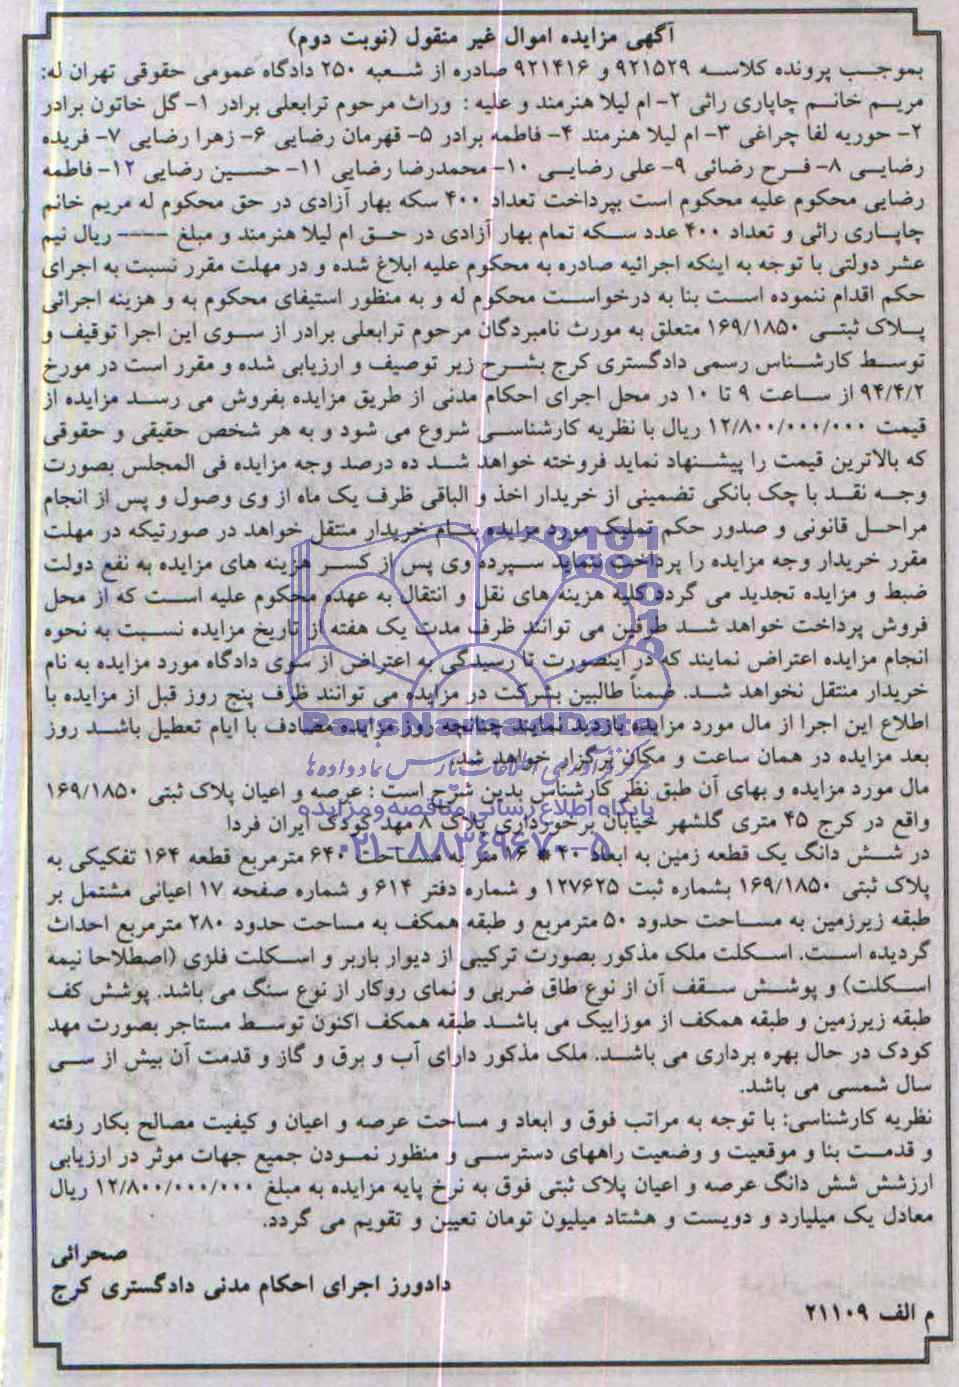 آگهی مزایده اموال غیر منقول (نوبت دوم)
بموجب پرونده کلاسه ۹۲۱۵۲۹ و ۹۲۱۴۱۶ صادره از شعبه ۲۵۰ دادگاه عمومی حقوقی تهران له:
مریم خانم چاپاری راثی ۲- ام لیلا هنرمند و علیه : وراث مرحوم ترابعلی برادر ۱- گل خاتون برادر
۲- حوریه لفا چراغی ۳- ام لیلا هنرمند ۴- فاطمه برادر ۵- قهرمان رضایی ۶- زهرا رضایی ۷- فریده
رضایی ۸- فرح رضائی ۹- علی رضایی ۱۰- محمدرضا رضایی ۱۱- حسین رضایی ۱۲- فاطمه
رضایی محکوم علیه محکوم است بپرداخت تعداد ۴۰۰ سکه بهار آزادی در حق محکوم له مریم خانم
چاپاری رائی و تعداد ۴۰۰ عدد سکه تمام بهار آزادی در حق ام لیلا هنرمند و مبلغ ---- ریال نیم
عشر دولتی با توجه به اینکه اجرائیه صادره به محکوم علیه ابلاغ شده و در مهلت مقرر نسبت به اجرای
حکم اقدام ننموده است بنا به درخواست محکوم له و به منظور استیفای محکوم به و هزینه اجرائی
پلاک ثبتی ۱۶۹/۱۸۵۰ متعلق به مورث نامبردگان مرحوم ترابعلی برادر از سوی این اجرا توقیف و
توسط کارشناس رسمی دادگستری کرج بشرح زیر توصیف و ارزیابی شده و مقرر است در مورخ
۹۴/۴/۲ از ساعت ۹ تا ۱۰ در محل اجرای احکام مدنی از طریق مزایده بفروش می رسد مزایده از
قیمت ۱۲/۸۰۰/۰۰۰/۰۰۰ ریال با نظریه کارشناسی شروع می شود و به هر شخص حقیقی و حقوقی
که بالاترین قیمت را پیشنهاد نماید فروخته خواهد شد ده درصد وجه مزایده فی المجلس بصورت
وجه نقد با چک بانکی تضمینی از خریدار اخذ و الباقی ظرف یک ماه از وی وصول و پس از انجام
مراحل قانونی و صدور حکم تملیک مورد مزایده بنام خریدار منتقل خواهد در صورتیکه در مهلت
مقرر خریدار وجه مزایده را پرداخت ننماید سپرده وی پس از کسر هزینه های مزایده به نفع دولت
ضبط و مزایده تجدید می گردد کلیه هزینه های نقل و انتقال به عهده محکوم علیه است که از محل
فروش پرداخت خواهد شد طرفین می توانند ظرف مدت یک هفته از تاریخ مزایده نسبت به نحوه
انجام مزایده اعتراض نمایند که در اینصورت تا رسیدگی به اعتراض از سوی دادگاه مورد مزایده به نام
خریدار منتقل نخواهد شد. ضمناً طالبین بشرکت در مزایده می توانند ظرف پنج روز قبل از مزایده با
اطلاع این اجرا از مال مورد مزایده بازدید نمایند چنانچه روز مزایده مصادف با ایام تعطیل باشد روز
بعد مزایده در همان ساعت و مکان برگزار خواهد شد.
ParsNamadData
مرکز فرآوری اطلاعات پارس نماد داده ها
مال مورد مزایده و بهای آن طبق نظر کارشناس بدین شرح است : عرصه و اعیان پلاک ثبتی ۱۶۹/۱۸۵۰
پایگاه اطلاع رسانی مناقصه و مزایده
واقع در کرج ۴۵ متری گلشهر خیابان برخورداری پلاک ۸ مهد کودک ایران فردا
۰۲۱-۸۸۳۴۹۶۷۰-۵
در شش دانگ یک قطعه زمین به ابعاد ۴۰ * ۱۶ متر به مساحت ۶۴۰ مترمربع قطعه ۱۶۴ تفکیکی به
پلاک ثبتی ۱۶۹/۱۸۵۰ بشماره ثبت ۱۲۷۶۲۵ و شماره دفتر ۶۱۴ و شماره صفحه ۱۷ اعیانی مشتمل بر
طبقه زیرزمین به مساحت حدود ۵۰ مترمربع و طبقه همکف به مساحت حدود ۲۸۰ مترمربع احداث
گردیده است. اسکلت ملک مذکور بصورت ترکیبی از دیوار باربر و اسکلت فلزی (اصطلاحا نیمه
اسکلت) و پوشش سقف آن از نوع طاق ضربی و نمای روکار از نوع سنگ می باشد. پوشش کف
طبقه زیرزمین و طبقه همکف از موزاییک می باشد طبقه همکف اکنون توسط مستاجر بصورت مهد
کودک در حال بهره برداری می باشد. ملک مذکور دارای آب و برق و گاز و قدمت آن بیش از سی
سال شمسی می باشد.
نظریه کارشناسی: با توجه به مراتب فوق و ابعاد و مساحت عرصه و اعیان و کیفیت مصالح بکار رفته
و قدمت بنا و موقعیت و وضعیت راههای دسترسی و منظور نمودن جمیع جهات موثر در ارزیابی
ارزشش شش دانگ عرصه و اعیان پلاک ثبتی فوق به نرخ پایه مزایده به مبلغ ۱۲/۸۰۰/۰۰۰/۰۰۰ ریال
معادل یک میلیارد و دویست و هشتاد میلیون تومان تعیین و تقویم می گردد.
صحرائی
دادورز اجرای احکام مدنی دادگستری کرج
م الف ۲۱۱۰۹